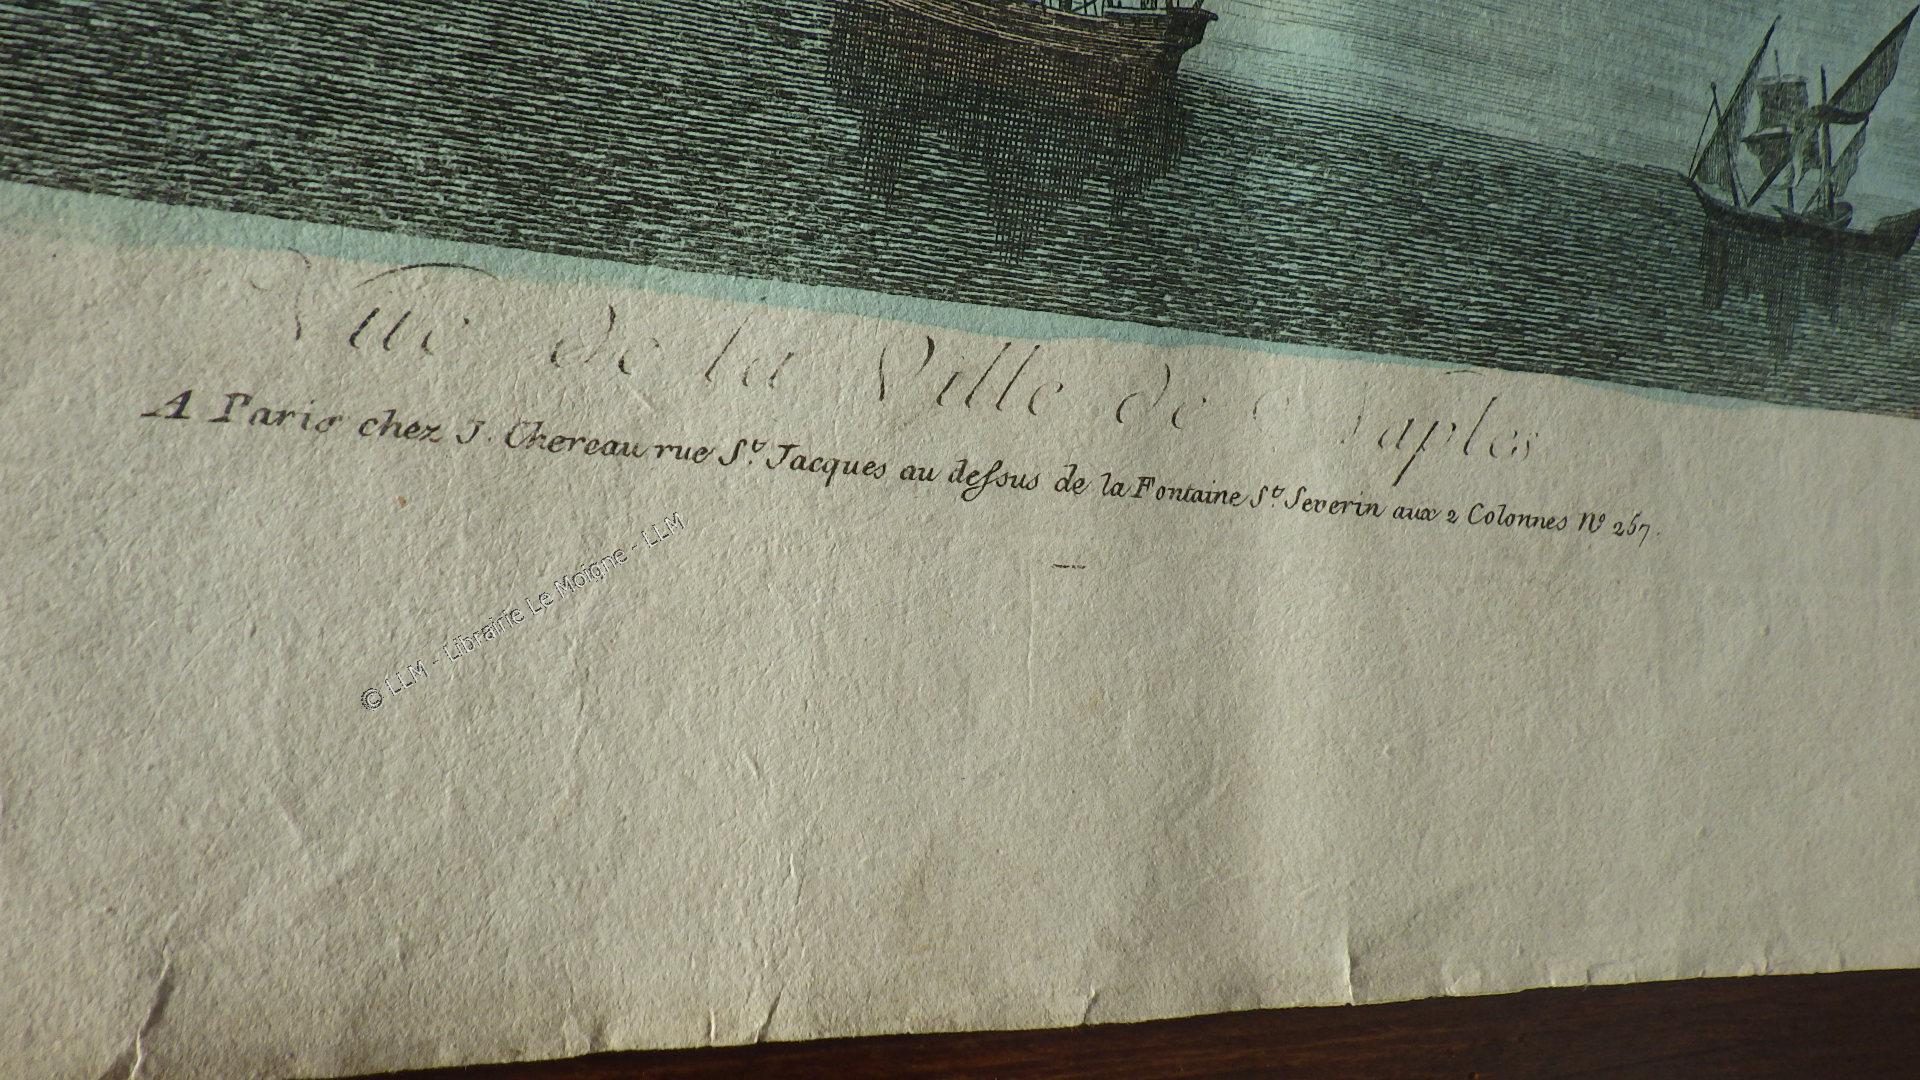 Vue de la Ville de Naples
A Paris chez J. Chereau rue St. Jacques au dessus de la Fontaine St. Severin aux 2 Colonnes No 257.
© LLM - Librairie Le Moigne - LLM